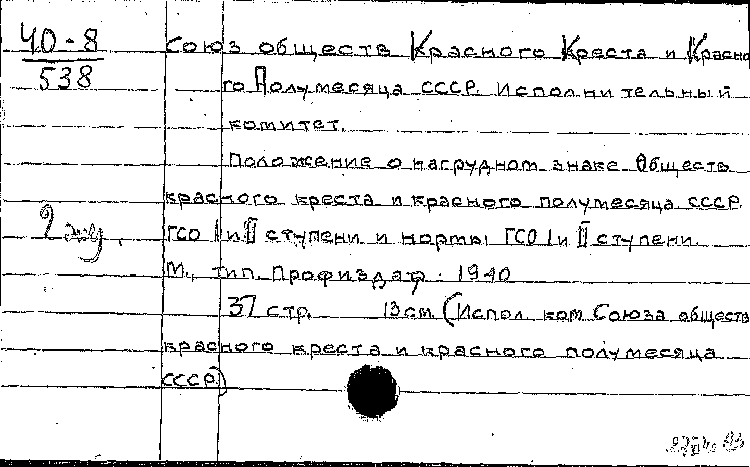 40-8
538
Союз обществ Красного Креста и Красно
го Полумесяца СССР. Исполнительный
комитет.
Положение о нагрудном знаке Обществ
красного креста и красного полумесяца СССР.
2 экз.
ГСО I и II ступени и нормы ГСО I и II ступени.
М., тип. Профиздат. 1940
37 стр. 13 см (Испол. ком Союза обществ
красного креста и красного полумесяца
СССР)